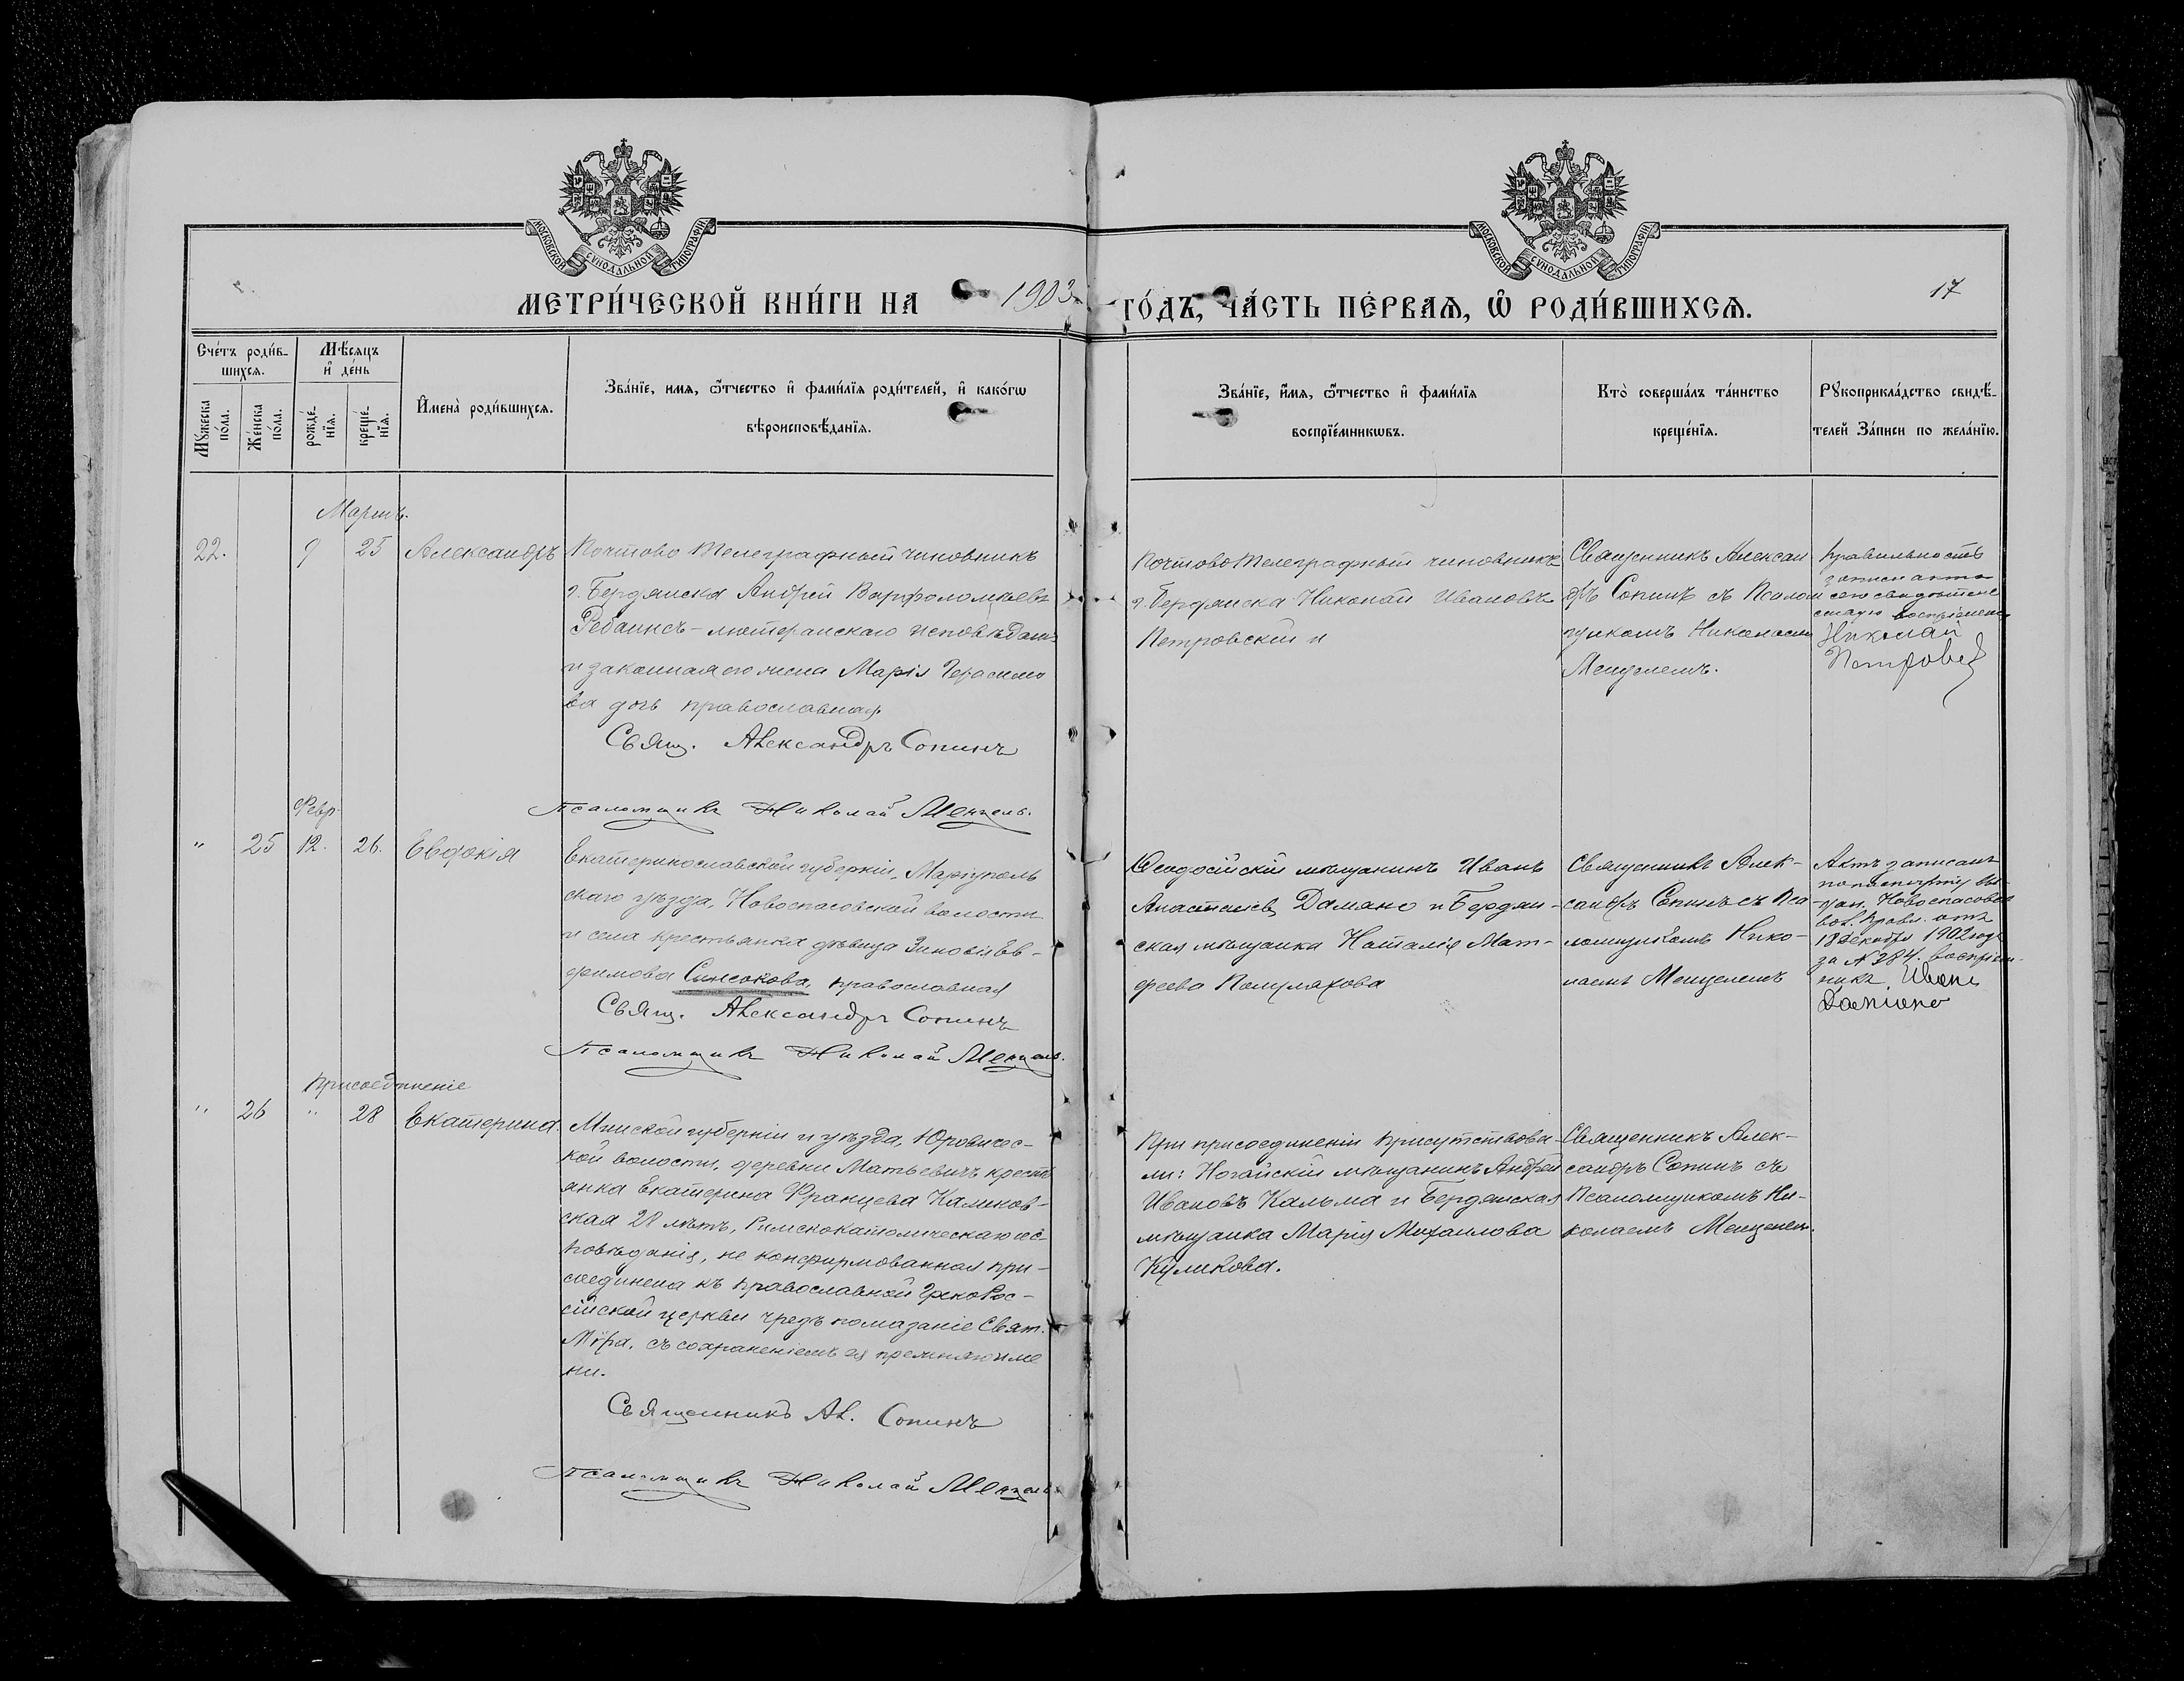 МОСКОВСКОЙ СѴНОДАЛЬНОЙ ТИПОГРАФІИ
МОСКОВСКОЙ СѴНОДАЛЬНОЙ ТИПОГРАФІИ
МЕТРИ́ЧЕСКОЙ КНИ́ГИ НА 1903
ГО́ДЪ, ЧА́СТЬ ПЕ́РВАЯ, Ѽ РОДИ́ВШИХСЯ.
17
Сче́тъ роди́в-
шихся.
Мѣ́сяцъ
и҆ де́нь
Мꙋ́жеска
по́ла.
Же́нска
по́ла.
рожде́-
нїя.
креще́-
нїя.
И҆мена̀ роди́вшихся.
Зва́нїе, имя, ѻ҆́тчество и҆ фами́лїя роди́телей, и҆ како́гѡ
вѣроисповѣ́данїя.
Зва́нїе, и҆́мя, ѻ҆́тчество и҆ фами́лїя
воспрїе́мникѡвъ.
Кто̀ соверша́лъ та́инство
креще́нїя.
Рꙋкоприкла́дство свидѣ́-
телей За́писи по жела́нїю.
Мартъ.
22.
9
25
Александръ
Почтово Телеграфный чиновникъ
г. Бердянска Андрей Варфоломѣевъ
лютеранскаго исповѣдан.
и законная его жена Марія Герасимо
ва дочь православная
Свящ. Александръ Сопинъ
Псаломщикъ Николай Менцель.
Почтово Телеграфный чиновникъ
г. Бердянска Николай Ивановъ
Петровскій и
Священникъ Алексан
дръ Сопинъ съ Псалом
щикомъ Николаемъ
Менцелемъ.
правильность
записи акта
сего свидѣтель
ствую воспріемн.
Николай
Петровск
Февр.
"
25
12.
26.
Евдокія
Екатеринославской губерніи, Маріуполь
скаго уѣзда, Новоспасовской волости
и села крестьянка дѣвица Зиновія Ев-
фимова православная
Свящ. Александръ Сопинъ
Псаломщикъ Николай Менцель.
Ѳеодосійскій мѣщанинъ Иванъ
Анастасіевъ Дамяно и Бердян-
ская мѣщанка Наталія Мат-
феева Полуляхова
Священникъ Алек-
сандръ Сопинъ съ Пса
ломщикомъ Нико-
лаемъ Менцелемъ
Актъ записанъ
по паспорту вы-
дан. Новоспасовск
вол. правл. отъ
18 декабря 1902 года
за № 384. воспріем-
никъ Иванъ
Дамяно
Присоединеніе
"
26
"
28
Екатерина.
Минской губерніи и уѣзда, Юровичес-
кой волости, деревни Матьевичъ кресть
янка Екатерина Францева Калинов-
ская 28 лѣтъ, Римскокатолическаго ис-
повѣданія, не конфирмованная при-
соединена къ Православной ГрекоРос-
сійской церкви чрезъ помазаніе Свят.
Мѵра, съ сохраненіемъ ея прежняго име
ни.
Священникъ Ал. Сопинъ
Псаломщикъ Николай Менцель.
При присоединеніи присутствова-
ли: Ногайскій мѣщанинъ Андрей
Ивановъ Кальма и Бердянская
мѣщанка Марія Михаилова
Куликова.
Священникъ Алек-
сандръ Сопинъ съ
Псаломщикомъ Ни-
колаемъ Менцелем.